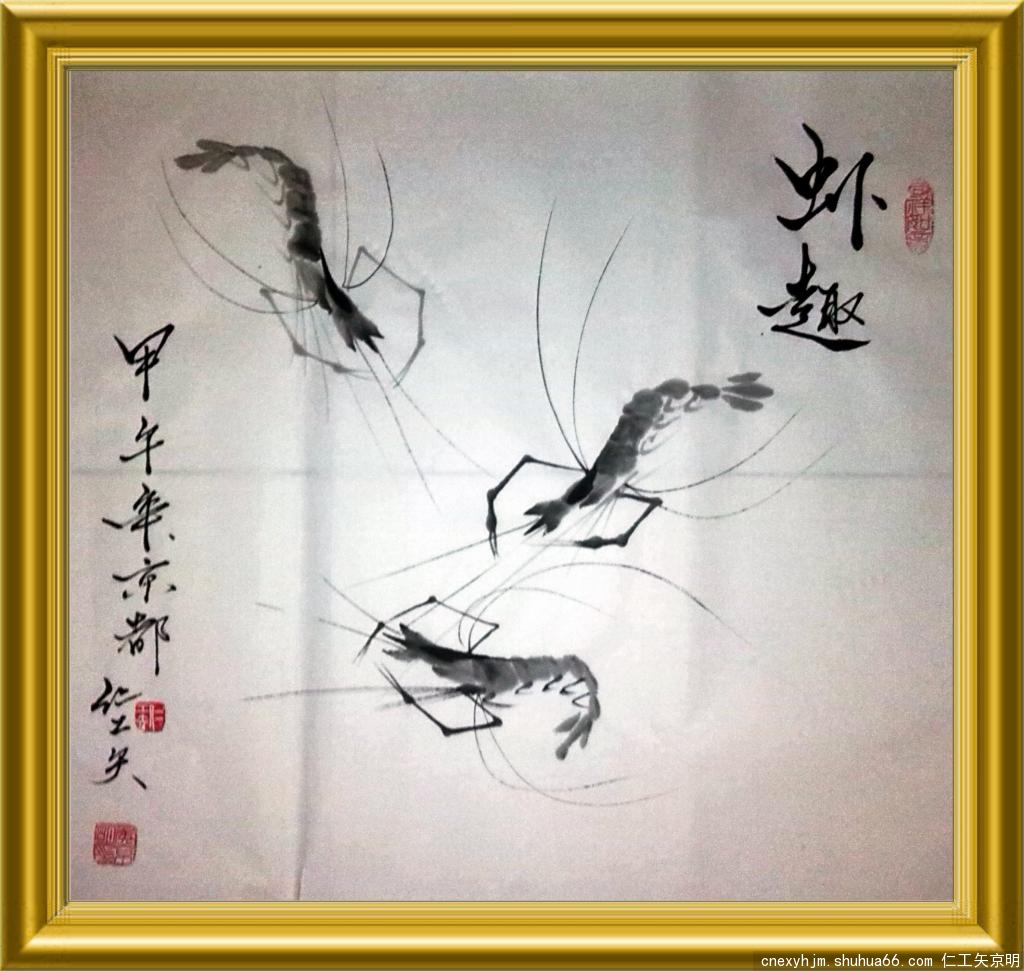 虾趣
甲午年京都
仁工矢
cnexyhjm.shuhua66.com 仁工矢京明